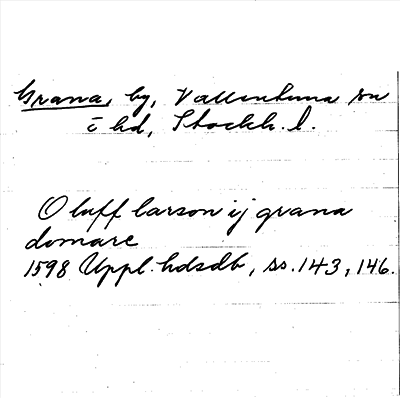 Grana, by, Vallentuna sn
o hd, Stockh. l.
Oluff larson ij grana
domare
1598 Uppl. hdsdb, ss. 143, 146.